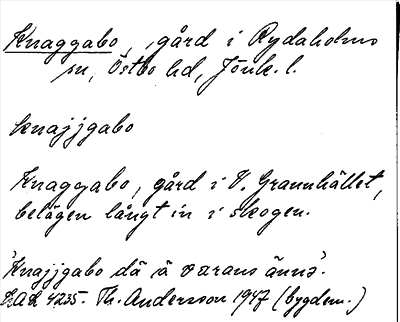 Knaggabo, gård i Rydaholms
sn, Östbo hd, Jönk. l.
knajjgabo
Knaggabo, gård i V. Grannhället,
belägen långt in i skogen.
'Knajjgabo dä ä varans änna'.
LAL 4235. Th. Andersson 1947 (bygdem.)